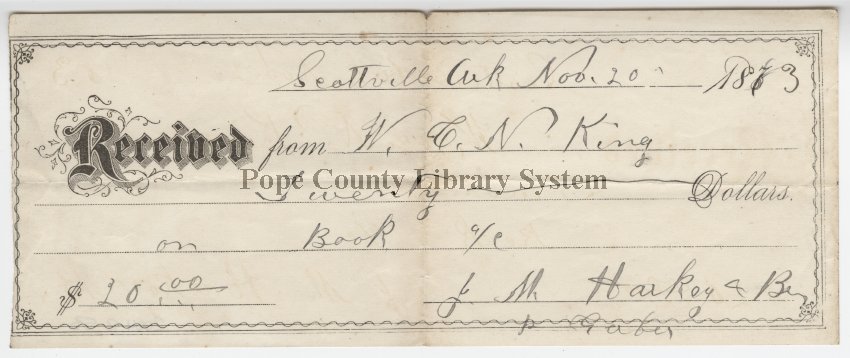 Scottville Ark Nov. 20 1883
Received from W. C. N. King
Pope County Library System
Twenty Dollars.
on Book a/c
$ 20 00 J. M. Harkey & Bro
p